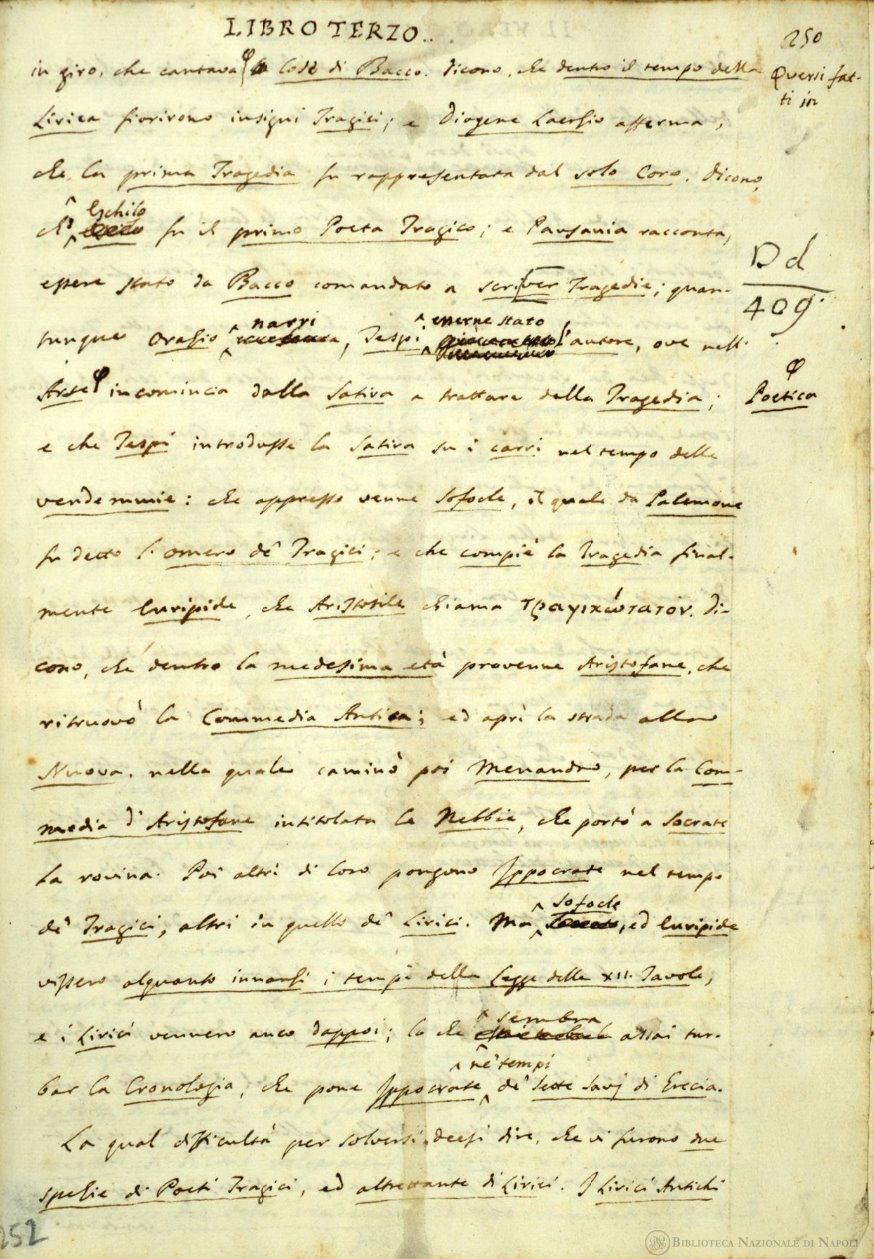 LIBRO TERZO..
250
in giro, che cantava φ Lode di Bacco. Dicono, che dentro il tempo della
φ versi fat-
ti in
Lirica fiorirono insigni Tragici; e Diogene Laerzio afferma,
che la prima Tragedia fu rappresentata dal solo Coro. Dicono,
ch' Eschilo fu il primo Poeta Tragico; e Pausania racconta,
essere stato da Bacco comandato a scriver Tragedie; quan-
Dd
409.
tunque Orazio narri, Tespi esserne stato l'autore, ove nell'
Arte φ incomincia dalla Satira a trattare della Tragedia;
φ
Poetica
e che Tespi introdusse la Satira su i carri nel tempo delle
vendemmie: che appresso venne Sofocle, il quale da Palemone
fu detto l'Omero de' Tragici; e che compiè la Tragedia final-
mente Euripide, che Aristotile chiama τραγικώτατον. Di-
cono, che dentro la medesima età provenne Aristofane, che
ritruovò la Commedia Antica; ed aprì la strada alla
Nuova, nella quale caminò poi Menandro, per la Com-
media d'Aristofane intitolata le Nebbie, che portò a Socrate
la rovina. Poi altri di loro pongono Ippocrate nel tempo
de' Tragici, altri in quello de' Lirici. Ma Sofocle, ed Euripide
vissero alquanto innanzi i tempi della Legge delle XII. Tavole,
e i Lirici vennero anco dappoi; lo che sembra assai tur-
bar la Cronologia, che pone Ippocrate ne' tempi de' Sette Savj di Grecia.
La qual difficultà per solversi, deesi dire, che vi furono due
spezie di Poeti Tragici, ed altrettante di Lirici. I Lirici Antichi
252
BIBLIOTECA NAZIONALE DI NAPOLI